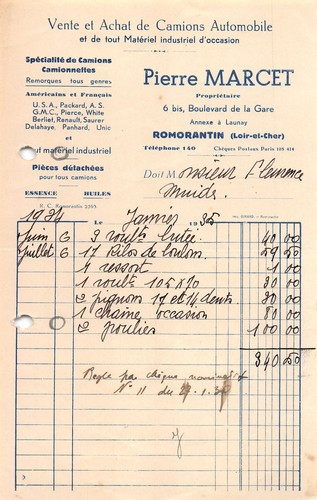 Vente et Achat de Camions Automobile
et de tout Matériel industriel d'occasion
Spécialité de Camions
Camionnettes
Remorques tous genres
Américains et Français
U. S. A., Packard, A. S.
G.M.C., Pierce, White
Berliet, Renault, Saurer
Delahaye, Panhard, Unic
et
Tout matériel industriel
Pièces détachées
pour tous camions
ESSENCE HUILES
R. C. Romorantin 2393
Pierre MARCET
Propriétaire
6 bis, Boulevard de la Gare
Annexe à Launay
ROMORANTIN (Loir-et-Cher)
Téléphone 140 Chèques Postaux Paris
Doit Monsieur
Muids.
1934 Le Janvier 1935
Juin 6 3 roults butée. 40 00
Juillet 6 17 Kilos de boulon. 59 50
1 ressort 1 00
1 roult 105 x 70 30 00
2 pignons 17 et 14 dents. 30 00
1 chaine occasion 80 00
2 poulies 100 00
340 50
Regle par chèque
N° 11 du